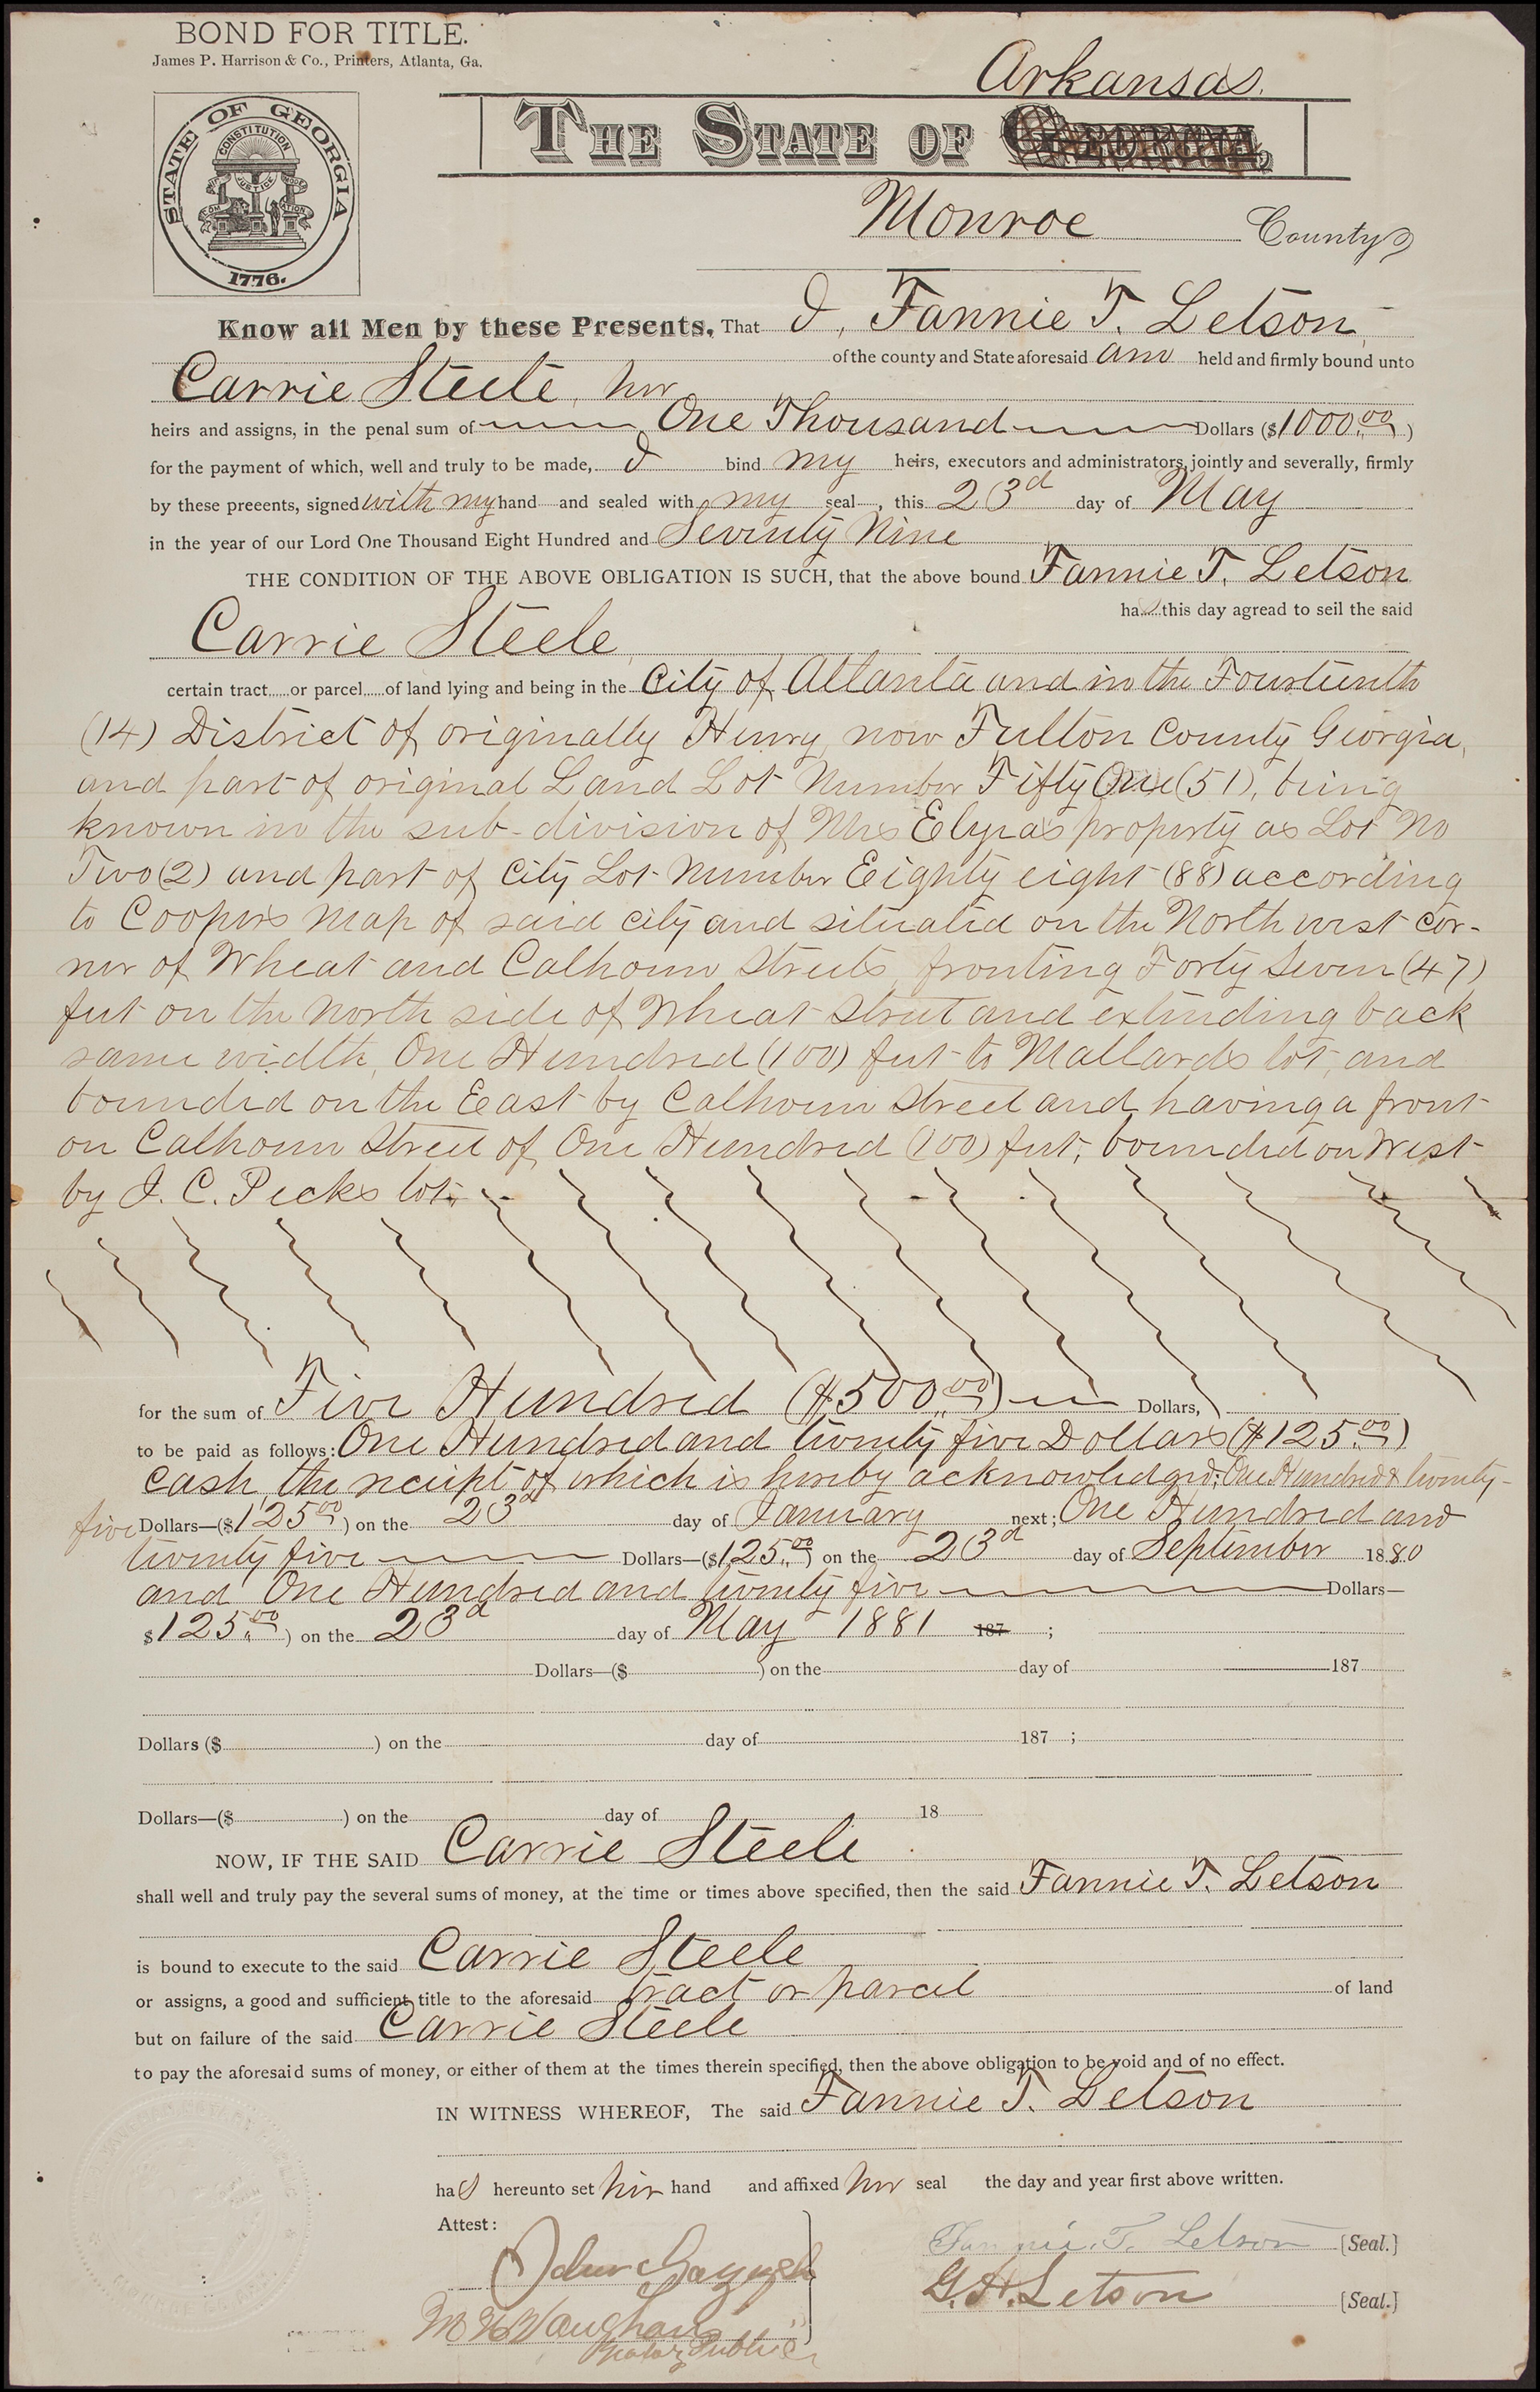 BOND FOR TITLE.
James P. Harrison & Co., Printers, Atlanta, Ga.
Arkansas.
THE STATE OF GEORGIA,
STATE OF GEORGIA
CONSTITUTION
JUSTICE
1776.
Monroe County
Know all Men by these Presents, That I, Fannie T. Letson,
of the county and State aforesaid am held and firmly bound unto
Carrie Steele, her
heirs and assigns, in the penal sum of One Thousand Dollars ($1000.00)
for the payment of which, well and truly to be made, I bind my heirs, executors and administrators, jointly and severally, firmly
by these preeents, signed with my hand and sealed with my seal, this 23d day of May
in the year of our Lord One Thousand Eight Hundred and Seventy Nine
THE CONDITION OF THE ABOVE OBLIGATION IS SUCH, that the above bound Fannie T. Letson
has this day agread to seil the said
Carrie Steele,
certain tract or parcel of land lying and being in the City of Atlanta and in the Fourteenth
(14) District of originally Henry, now Fulton County Georgia,
and part of original Land Lot Number Fifty One (51), being
known in the sub-division of Mrs Elyea's property as Lot No
Two (2) and part of City Lot Number Eighty eight (88) according
to Cooper's Map of said city and situated on the North west cor-
ner of Wheat and Calhoun Streets, fronting Forty Seven (47)
feet on the North side of Wheat Street and extending back
same width, One Hundred (100) feet to Mallards lot, and
bounded on the East by Calhoun Street and having a front
on Calhoun Street of One Hundred (100) feet, bounded on West
by J. C. Pecks lot.
for the sum of Five Hundred ($500.00) Dollars,
to be paid as follows: One Hundred and twenty five Dollars ($125.00)
cash, the receipt of which is hereby acknowledged; One Hundred & twenty-
five Dollars—($125.00) on the 23d day of January next; One Hundred and
twenty five Dollars—($125.00) on the 23d day of September 1880
and One Hundred and twenty five Dollars—
$125.00) on the 23d day of May 1881 187 ;
Dollars—($ ) on the day of 187
Dollars ($ ) on the day of 187 ;
Dollars—($ ) on the day of 18
NOW, IF THE SAID Carrie Steele
shall well and truly pay the several sums of money, at the time or times above specified, then the said Fannie T. Letson
is bound to execute to the said Carrie Steele
or assigns, a good and sufficient title to the aforesaid tract or parcel of land
but on failure of the said Carrie Steele
to pay the aforesaid sums of money, or either of them at the times therein specified, then the above obligation to be void and of no effect.
IN WITNESS WHEREOF, The said Fannie T. Letson
has hereunto set her hand and affixed her seal the day and year first above written.
Attest:
Fannie T. Letson [Seal.]
John
G. H. Letson [Seal.]
Vaughan
Notary Public